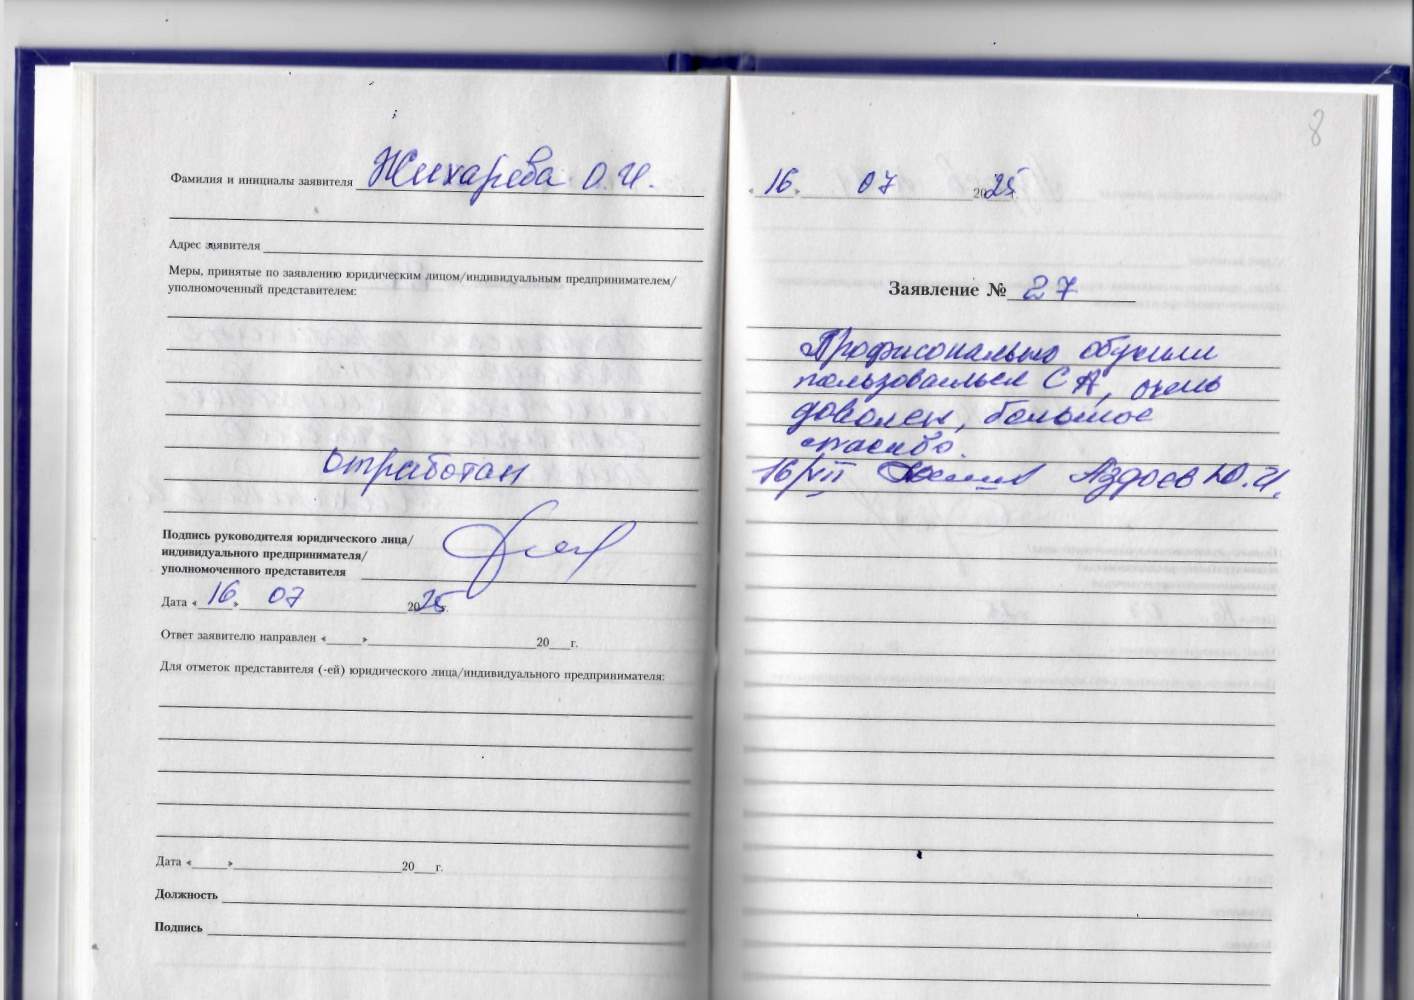 Фамилия и инициалы заявителя Жихарева О.И.
Адрес заявителя
Меры, принятые по заявлению юридическим лицом/индивидуальным предпринимателем/
уполномоченный представителем:
отработан
Подпись руководителя юридического лица/
индивидуального предпринимателя/
уполномоченного представителя
Дата «16» 07 2025г.
Ответ заявителю направлен «____»____20__г.
Для отметок представителя (-ей) юридического лица/индивидуального предпринимателя:
Дата «____»____20__г.
Должность
Подпись
8
«16» 07 2025
Заявление № 27
Профисонально обучили
пользоваться СА, очень
доволен, большое
спасибо.
16/VII Аздоев Ю.И.